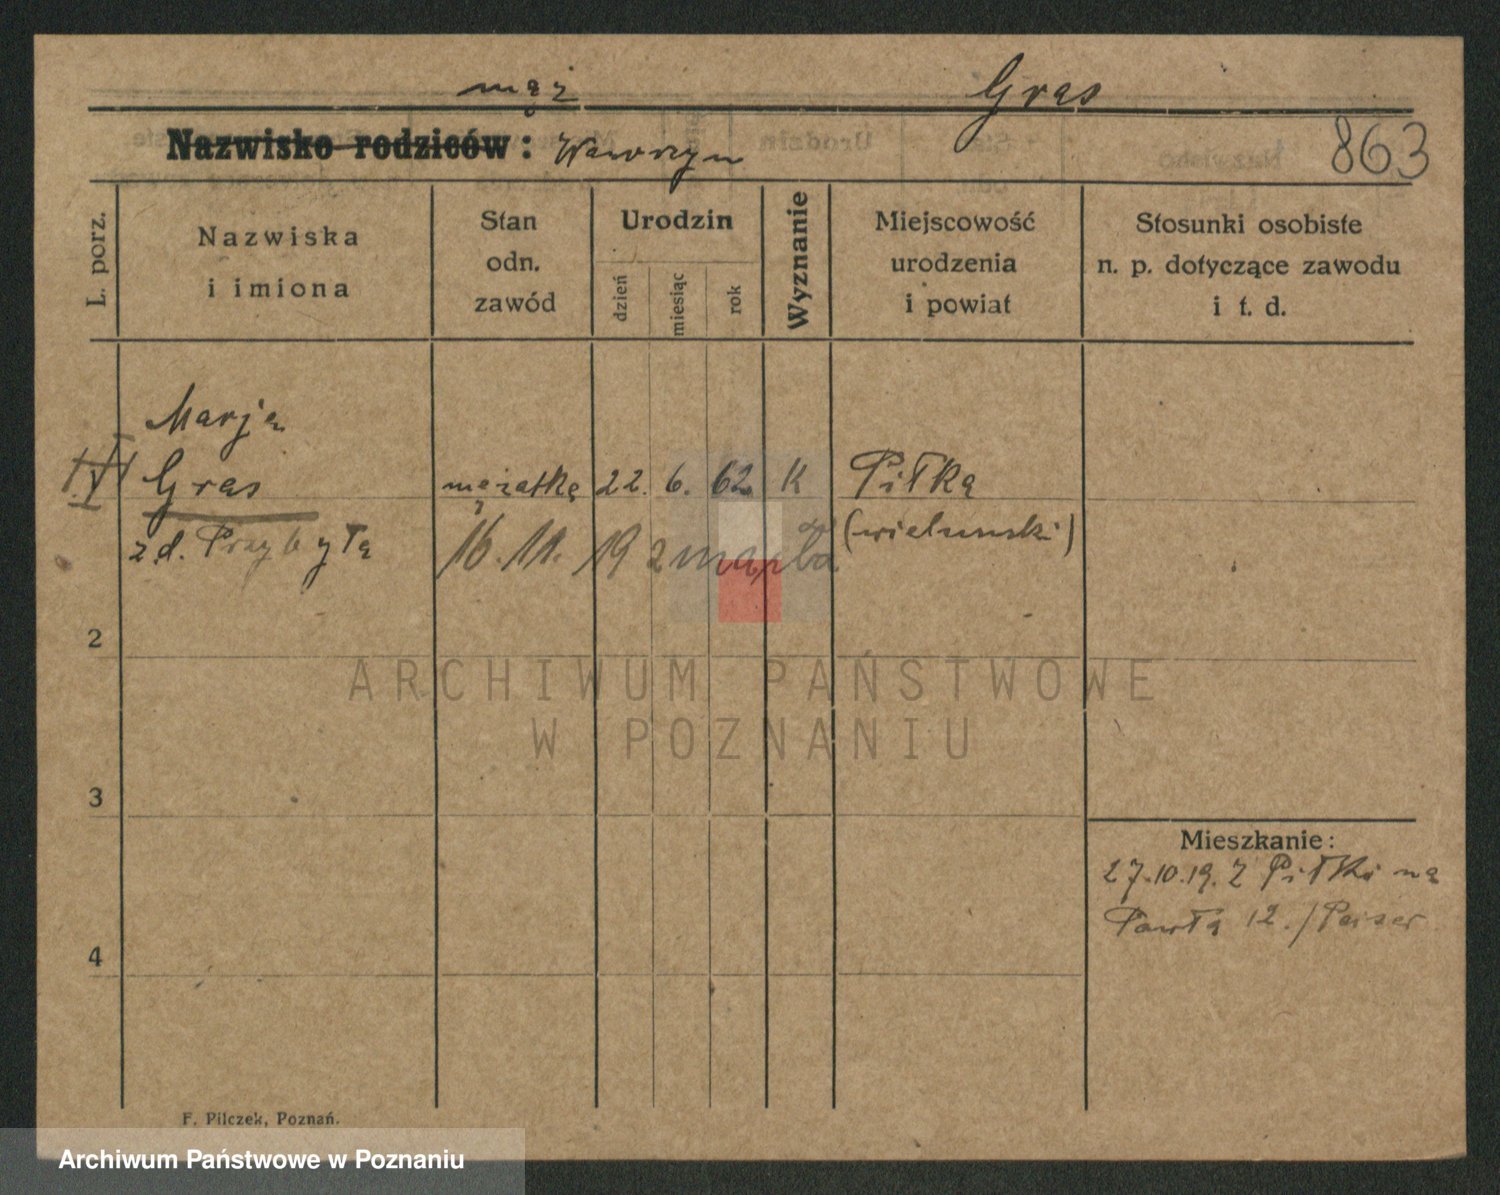 mąż Gras
Nazwisko rodziców: Wawrzyn 863
L. porz.
Nazwiska
i imiona
Stan
odn.
zawód
Urodzin
dzień
miesiąc
rok
Wyznanie
Miejscowość
urodzenia
i powiat
Stosunki osobiste
n. p. dotyczące zawodu
i t. d.
Marja
Gras mężatka 22. 6. 62 K Piłka
zd. Przybyła 16.11.19 zmarła (wieluński)
2
ARCHIWUM PAŃSTWOWE
W POZNANIU
3
Mieszkanie:
27.10.19. z Piłki na
Pawła 12./Peiser
4
F. Pilczek, Poznań.
Archiwum Państwowe w Poznaniu